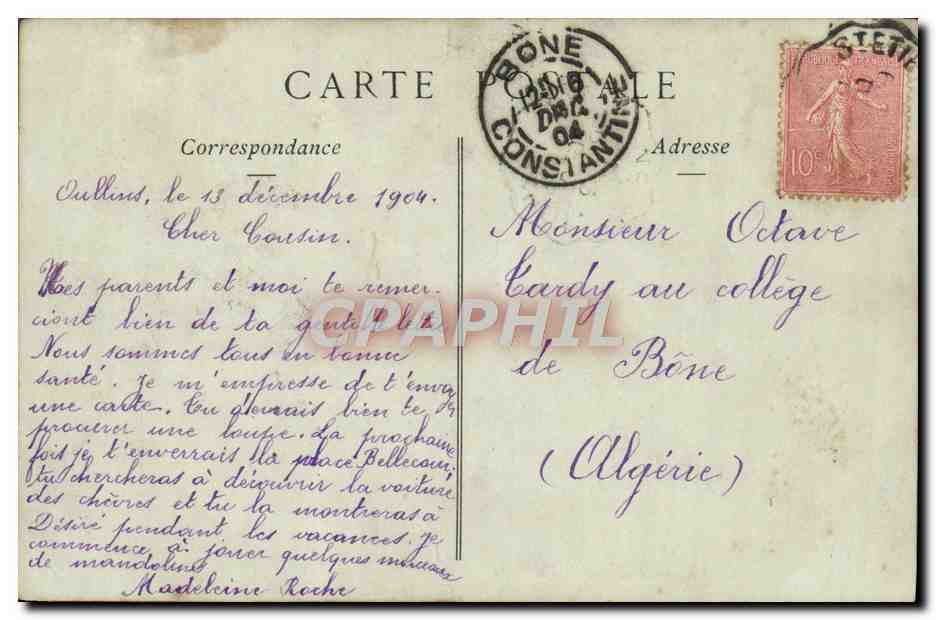 CARTE POSTALE
Correspondance
Adresse
BÔNE
DEC
04
CONSTANTINE
RÉPUBLIQUE FRANÇAISE
10c
Oullins, le 13 décembre 1904.
Cher Cousin.
Mes parents et moi te remer-
cient bien de ta gentille lettre.
Nous sommes tous en bonne
santé. Je m'empresse de t'envoyer
une carte. Tu devrais bien te
procurer une loupe. La prochaine
fois je t'enverrais la place Bellecour;
tu chercheras à découvrir la voiture
des chèvres et tu la montreras à
Désiré pendant les vacances. Je
commence à jouer quelques morceaux
de mandoline
Madeleine Roche
Monsieur Octave
Tardy au collège
de Bône
(Algérie)
CPAPHIL